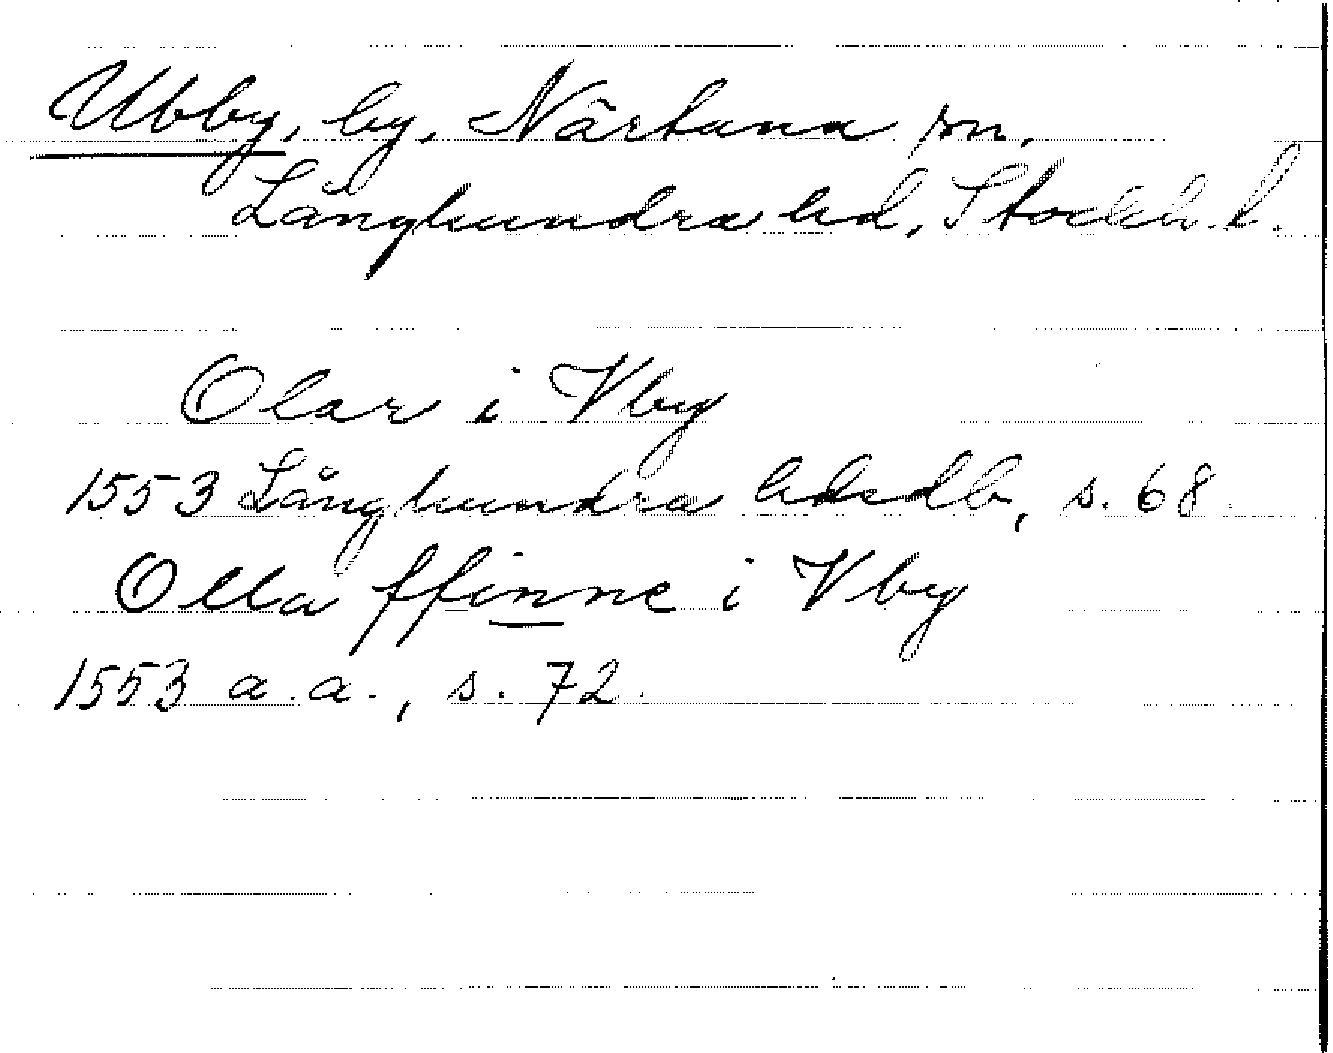 Ubby, by, Närtuna sn,
Långhundra hd, Stockh. l.
Olar i Vby
1553 Långhundra hdsdb, s. 68
Olla ffinne i Vby
1553 a.a., s. 72.